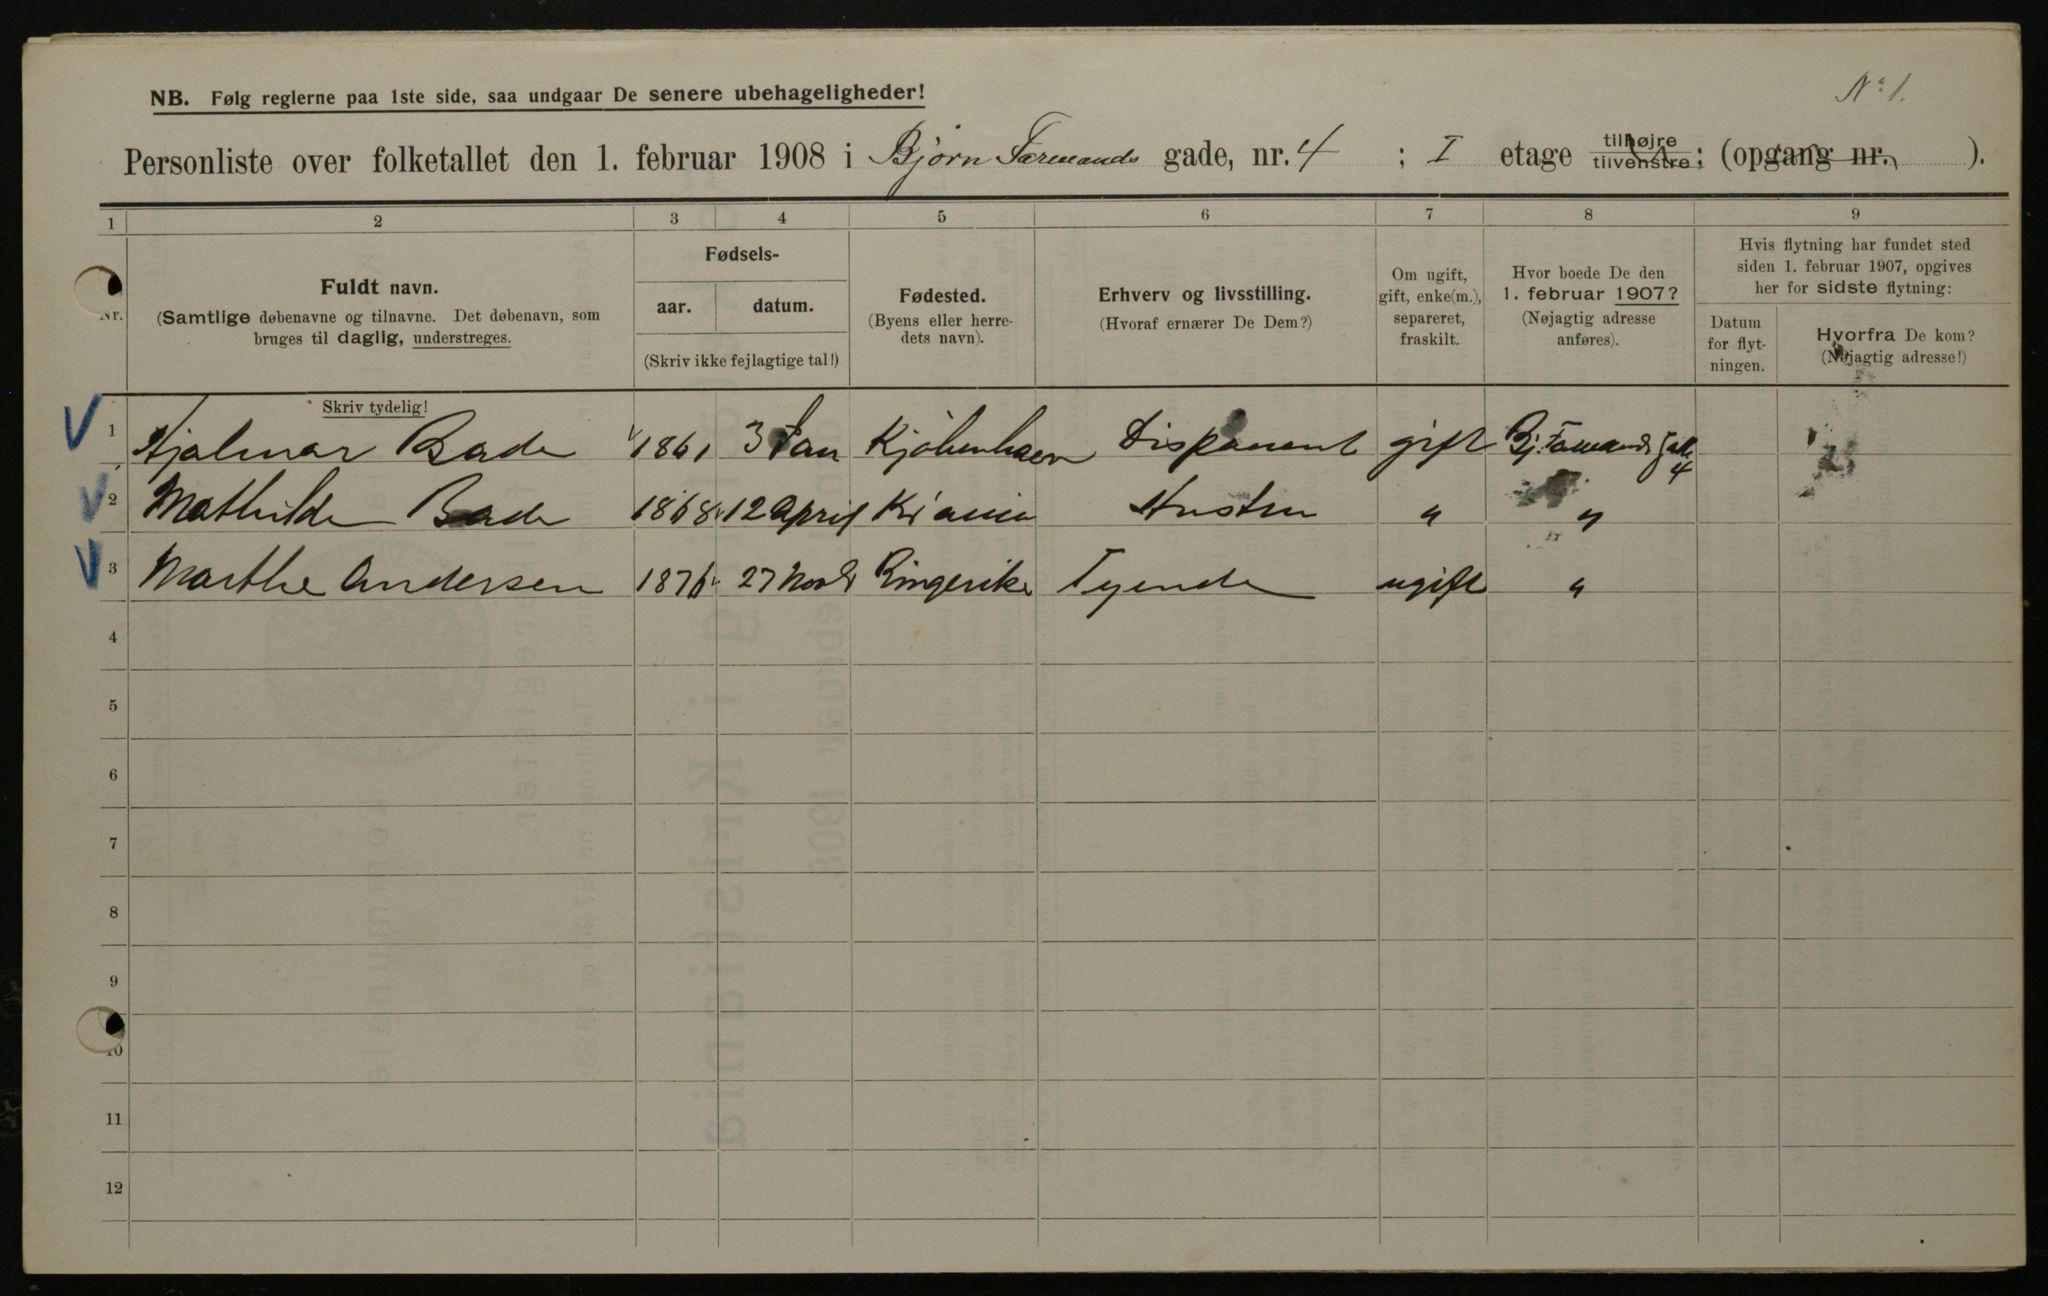 No 1.
NB. Følg reglerne paa 1ste side, saa undgaar De senere ubehageligheder!
Personliste over folketallet den 1. februar 1908 i Bjørn Farmands gade, nr. 4 ; I etage tilhøjre tilvenstre ; (opgang nr. ).
1 2 3 4 5 6 7 8 9
Nr.
Fuldt navn.
(Samtlige døbenavne og tilnavne. Det døbenavn, som
bruges til daglig, understreges.
Skriv tydelig!
Fødsels-
aar. datum.
(Skriv ikke fejlagtige tal!)
Fødested.
(Byens eller herre-
dets navn).
Erhverv og livsstilling.
(Hvoraf ernærer De Dem?)
Om ugift,
gift, enke(m.),
separeret,
fraskilt.
Hvor boede De den
1. februar 1907?
(Nøjagtig adresse
anføres).
Hvis flytning har fundet sted
siden 1. februar 1907, opgives
her for sidste flytning:
Datum
for flyt-
ningen.
Hvorfra De kom?
(Nøjagtig adresse!)
V 1 Hjalmar Bade 1861 3 Jan Kjöbenhavn Disponent gift Bj. Farmands Gade 4
V 2 Mathilde Bade 1868 12 April Kr'ania Hustru " "
V 3 Marthe Andersen 1876 27 Novbr Ringerike Tyende ugift "
4
5
6
7
8
9
10
11
12